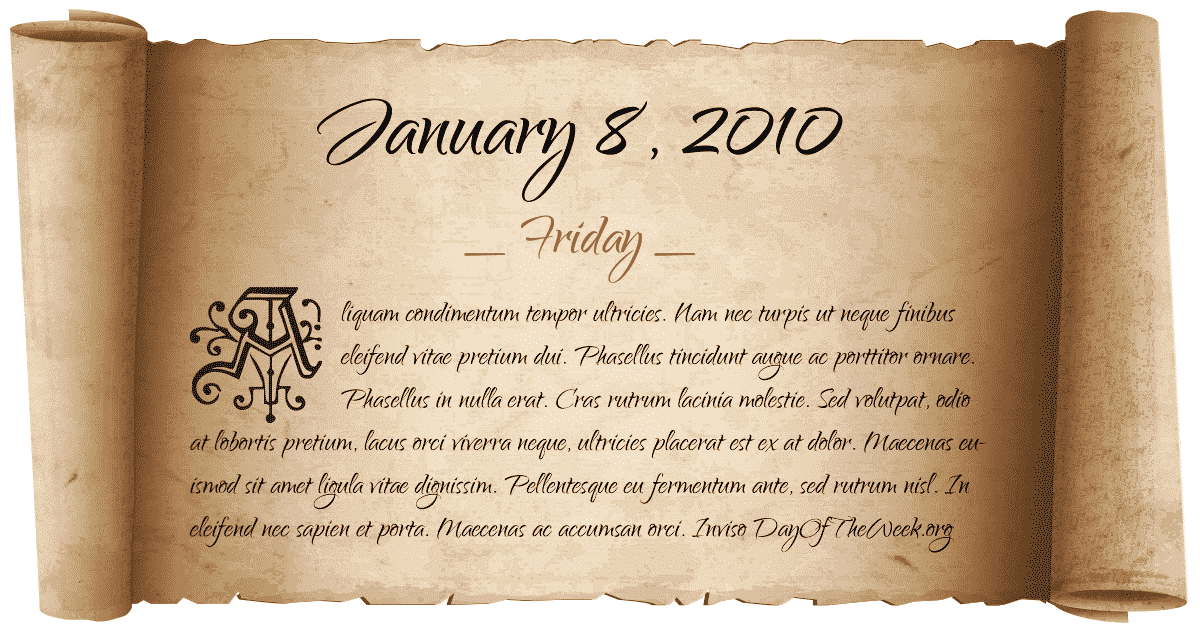 January 8, 2010
_ Friday _
Aliquam condimentum tempor ultricies. Nam nec turpis ut neque finibus
eleifend vitae pretium dui. Phasellus tincidunt augue ac porttitor ornare.
Phasellus in nulla erat. Cras rutrum lacinia molestie. Sed volutpat, odio
at lobortis pretium, lacus orci viverra neque, ultricies placerat est ex at dolor. Maecenas eu-
ismod sit amet ligula vitae dignissim. Pellentesque eu fermentum ante, sed rutrum nisl. In
eleifend nec sapien et porta. Maecenas ac accumsan orci. Inviso DayOfTheWeek.org